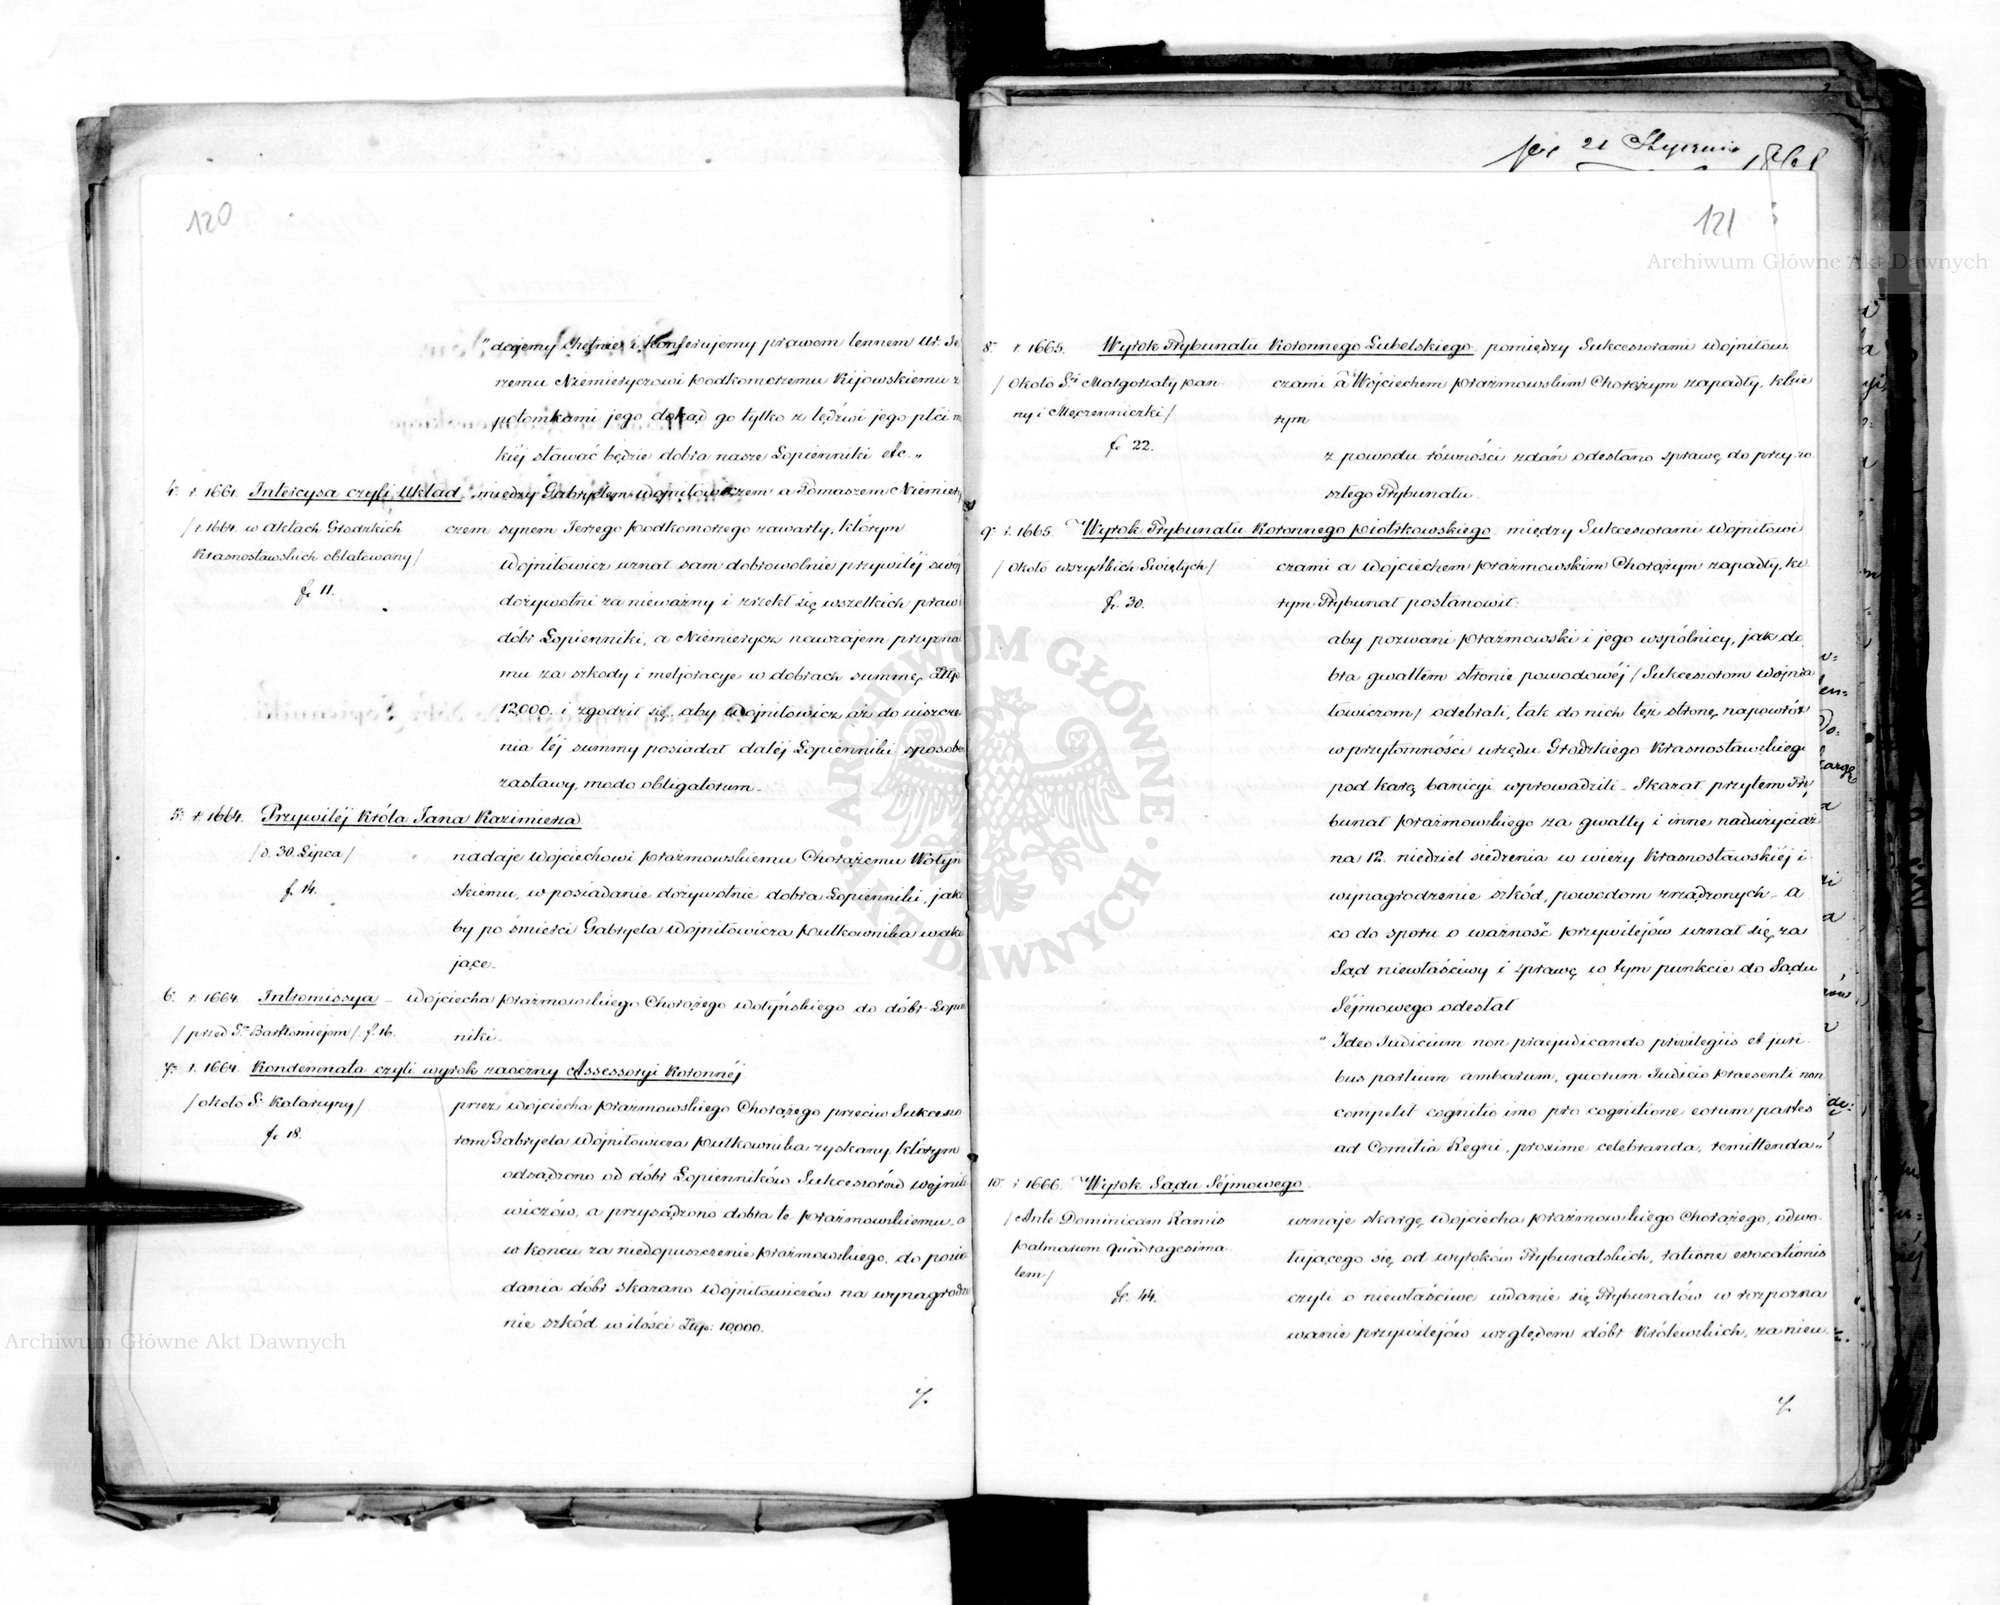 120
„dajemy chętnie i konferujemy prawem lennem Ur. Je
rzemu Niemieryczowi Podkomorzemu Kijowskiemu z
potomkami jego dokąd go tylko z lędźwi jego płci m
kiéj stawać będzie dobra nasze Łopienniki etc.„
4. r. 1661. Intercysa czyli Układ między Gabryelem Wojniłowiczem a Tomaszem Niemiery
/r. 1664. w Aktach Grodzkich
Krasnostawskich oblatowany/
f. 11.
czem synem Jerzego Podkomorzego zawarty, którym
Wojniłowicz uznał sam dobrowolnie przywiléj swój
dożywotni za nieważny i zrzekł się wszelkich praw
dóbr Łopienniki, a Niemierycz nawzajem przyzna
mu za szkody i melioracye w dobrach summę Złp
12,000. i zgodził się, aby Wojniłowicz aż do uiszcze
nia téj summy posiadał daléj Łopienniki sposobe
zastawy, modo obligatorum.
5. r. 1664. Przywiléj Króla Jana Kazimierza
/d. 30. Lipca/
f. 14.
nadaje Wojciechowi Prażmowskiemu Chorążemu Wołyń
skiemu, w posiadanie dożywotnie dobra Łopienniki, jako
by po śmierci Gabryela Wojniłowicza Pułkownika waku
jące.
6. r. 1664. Intromissya – Wojciecha Prażmowskiego Chorążego Wołyńskiego do dóbr Łopien
/przed Sm Bartłomiejem/ f. 16.
niki.
7. r. 1664. Kondemnata czyli wyrok zaoczny Assessoryi Koronnéj
/około S. Katarzyny/
f. 18.
przez Wojciecha Prażmowskiego Chorążego przeciw Sukcesso
rom Gabryela Wojniłowicza Pułkownika zyskany, którym
odsądzono od dóbr Łopienników Sukcessorów Wojniło
wiczów, a przysądzono dobra te Prażmowskiemu, a
w końcu za niedopuszczenie Prażmowskiego do posia
dania dóbr skazano Wojniłowiczów na wynagrodze
nie szkód w ilości Złp: 10,000.
21 Stycznia 1868
121
8. r. 1665. Wyrok Trybunału Koronnego Lubelskiego pomiędzy Sukcessorami Wojniłow
/około Sej Małgorzaty pan
ny i Męczenniczki/
f. 22.
czami a Wojciechem Prażmowskim Chorążym zapadły, któ
rym
z powodu równości zdań odesłano sprawę do przy
szłego Trybunału.
9. r. 1665. Wyrok Trybunału Koronnego Piotrkowskiego między Sukcessorami Wojniłowi
/około wszystkich Świętych/
f. 30.
czami a Wojciechem Prażmowskim Chorążym zapadły, kt
rym Trybunał postanowił:
aby pozwani Prażmowski i jego wspólnicy, jak do
bra gwałtem stronie powodowéj /Sukcessorom Wojni
łowiczom/ odebrali, tak do nich też stronę napowrót
w przytomności urzędu Grodzkiego Krasnostawskiego
pod karą banicyi wprowadzili. Skazał przytem Try
bunał Prażmowskiego za gwałty i inne nadużycia
na 12. niedziel siedzenia w wieży Krasnostawskiéj i
wynagrodzenie szkód, powodom zrządzonych – a
co do sporu o ważność przywilejów uznał się za
Sąd niewłaściwy i sprawę w tym punkcie do Sądu
Séjmowego odesłał
„Ideo Iudicium non praejudicando privilegiis et juri
bus partium ambarum, quorum Iudicio praesenti non
competit cognitio imo pro cognitione eorum partes
ad Comitia Regni, proxime celebranda, remittenda„
10. r. 1666. Wyrok Sądu Séjmowego
/Ante Dominicam Ramis
Palmarum Quadragesima
lem/
f. 44.
uznaje skargę Wojciecha Prażmowskiego Chorążego, odwo
łującego się od wyroków Trybunalskich, ratione evocationis
czyli o niewłaściwe udanie się Trybunałów w rozpozna
wanie przywilejów względem dóbr Królewskich, za nieu
Archiwum Główne Akt Dawnych
Archiwum Główne Akt Dawnych
ARCHIWUM GŁÓWNE AKT DAWNYCH